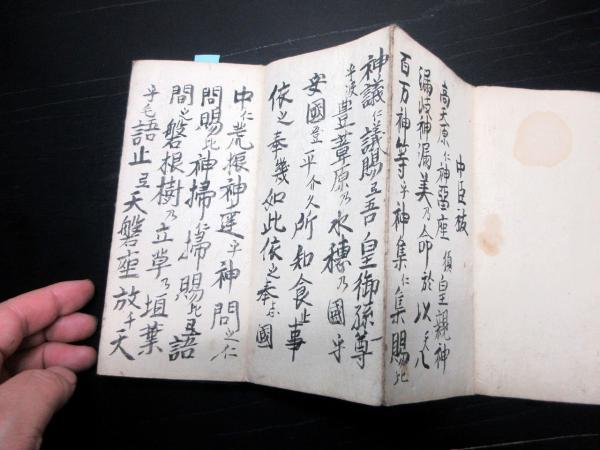 中臣祓
高天原仁神留座須皇親神
漏岐神漏美乃命於以天八
百万神等乎神集仁集賜比
神議仁議賜互吾皇御孫尊
乎波豊葦原乃水穂乃國乎
安國登平介久所知食止事
依之奉幾如此依之奉志國
中仁荒振神達乎神問之仁
問賜比神掃仁掃賜比互語
問之磐根樹乃立草乃垣葉
乎毛語止互天磐座放千天